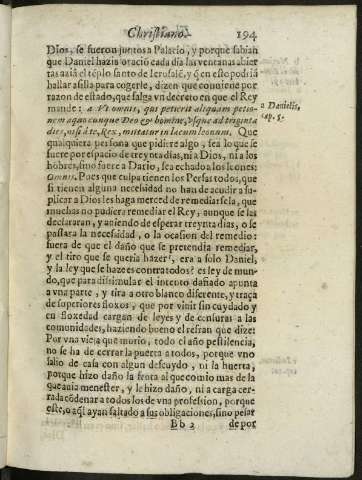 Christiano. 194
Dios, se fueron juntos a Palacio, y porque sabian
que Daniel hazia oració cada dia las ventanas abier
tas azia el téplo santo de Ierusalé, y q̃ en esto podriã
hallar asilla para cogerle, dizen que conviene por
razon de estado, que salga vn decreto en que el Rey
mande: a Vt omnis, qui petierit aliquam petitio-
nem a quocunque Deo & homine, vsque ad triginta
dies, nisi à te, Rex, mittatur in lacum leonum. Que
qualquiera persona que pidiere algo, sea lo que se
fuere por espacio de treynta dias, ni a Dios, ni a los
hõbres, sino fuere a Dario, sea echado a los leones:
Omnis. Pues que culpa tienen los Persas todos, que
si tienen alguna necesidad no han de acudir a su-
plicar a Dios les haga merced de remediarsela, que
muchas no pudiera remediar el Rey, aunque se las
declararan, y aniendo de esperar treynta dias, o se
passara la necesidad, o la ocasion del remedio:
fuera de que el daño que se pretendia remediar,
y el tiro que se queria hazer, era a solo Daniel,
y la ley que se haze es contra todos? es ley de mun-
do, que para dissimular el intento dañado apunta
a vna parte, y tira a otro blanco diferente, y traça
de superiores floxos, que por viuir sin cuydado y
en floxedad cargan de leyes y de censuras a las
comunidades, haziendo bueno el refran que dize:
Por vna vieja que murio, todo el año pestilencia,
no se ha de cerrar la puerta a todos, porque vno
salio de casa con algun descuydo, ni la huerta,
porque hizo daño la fruta al que comio mas de la
que auia menester, y le hizo daño, ni a carga cer-
rada cõdenar a todos los de vna profession, porque
este, o aq̃l ayan faltado a sus obligaciones, sino pesar
Bb 2 de por
a Danielis,
cap. 5.